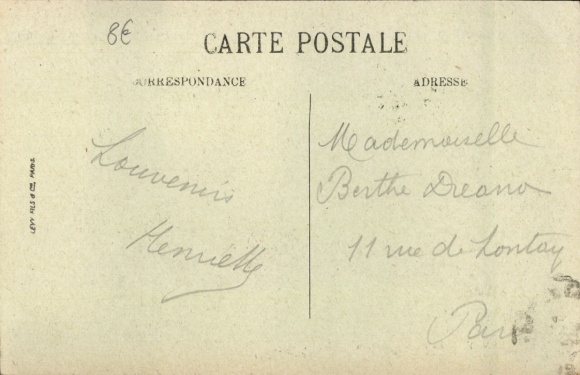 8€
CARTE POSTALE
CORRESPONDANCE
ADRESSE
Souvenirs
Henriette
Mademoiselle
Berthe Dreano
11 rue de Lontay
Paris
LEVY FILS & Cie, PARIS